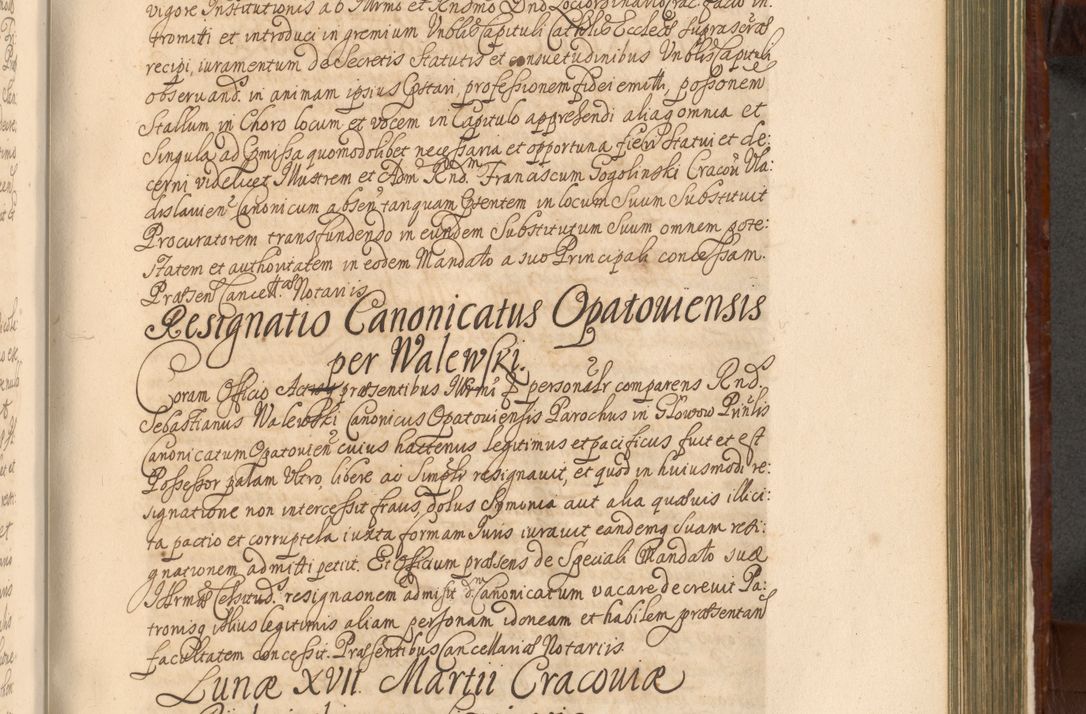 vigore Institutionis ab Illrmo et Rndmo Dno Loci Ordinario rac facto in:
tromitti et introduci in gremium Vnblis Capituli Cathlis Ecclesiæ supraseræ
recipi, iuramentum de Secretis Statutis et consuetudinibus Vnblis Capituli
observand. in animam ipsius præstari, professionem fidei emitti, possionem
Stallum in Choro locum et vocem in Capitulo apprehendi aliaq omnia et
Singula ad præmissa quomodolibet necessaria et opportuna fieri Statui et de:
cerni videlicet Illustrem et Adm Rnd. Franciscum Gogolinski Cracou Vla:
dislauien Canonicum absen tanquam præsentem in locum Suum Substituit
Procuratorem transfundendo in eundem Substitutum Suum omnem pote:
statem et authoritatem in eodem Mandato a suo Principali concessam.
Præsen Cancell. Notariis
Resignatio Canonicatus Opatouiensis
per Walewski.
Coram Officio præsentibus Illrmi personalr comparens Rnd.
Sebastianus Walewski Canonicus Opatouiensis Parochus in Głowow
Canonicatum Opatouien cuius hactenus legitimus et pacificus fuit et est
Possessor palam Vltro, libere ac simplr resignauit, et quod in huiusmodi re:
signatione non intercessit fraus, dolus Symonia aut alia quæuis illici:
ta pactio et corruptela iuxta formam Iuris iurauit eandemq suam resi:
gnationem admitti petiit. Et Officium præsens de Speciali Mandato suæ
Illrmæ Celsitud. resignaonem admisit dm Canonicatum vacare decreuit Pa:
tronisq illius legitimis aliam personam idoneam et habilem præsentan
facultatem concessit. Præsentibus Cancellariæ Notariis
Lunæ XVII. Martii Cracouiæ